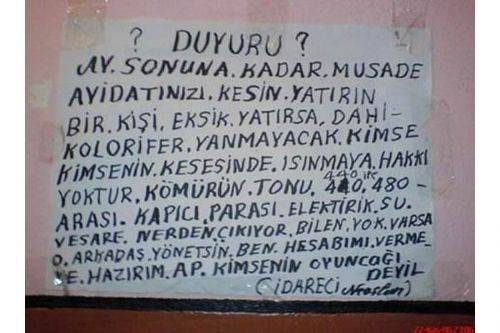 ? DUYURU ?
AY. SONUNA. KADAR. MUSADE
AYIDATINIZI. KESİN. YATIRIN
BİR. KİŞİ, EKSİK. YATIRSA, DAHİ-
KOLORİFER, YANMAYACAK, KİMSE
KİMSENİN. KESESİNDE. ISINMAYA. HAKKI
YOKTUR, KÖMÜRÜN. TONU, 440 ile 480-
ARASI. KAPICI, PARASI. ELEKTİRİK. SU.
VESARE. NERDEN, ÇIKIYOR, BİLEN, YOK. VARSA
O. ARKADAŞ. YÖNETSİN. BEN. HESABIMI. VERME-
YE. HAZIRIM. AP. KİMSENİN OYUNCAĞI
DEYİL
(İDARECİ